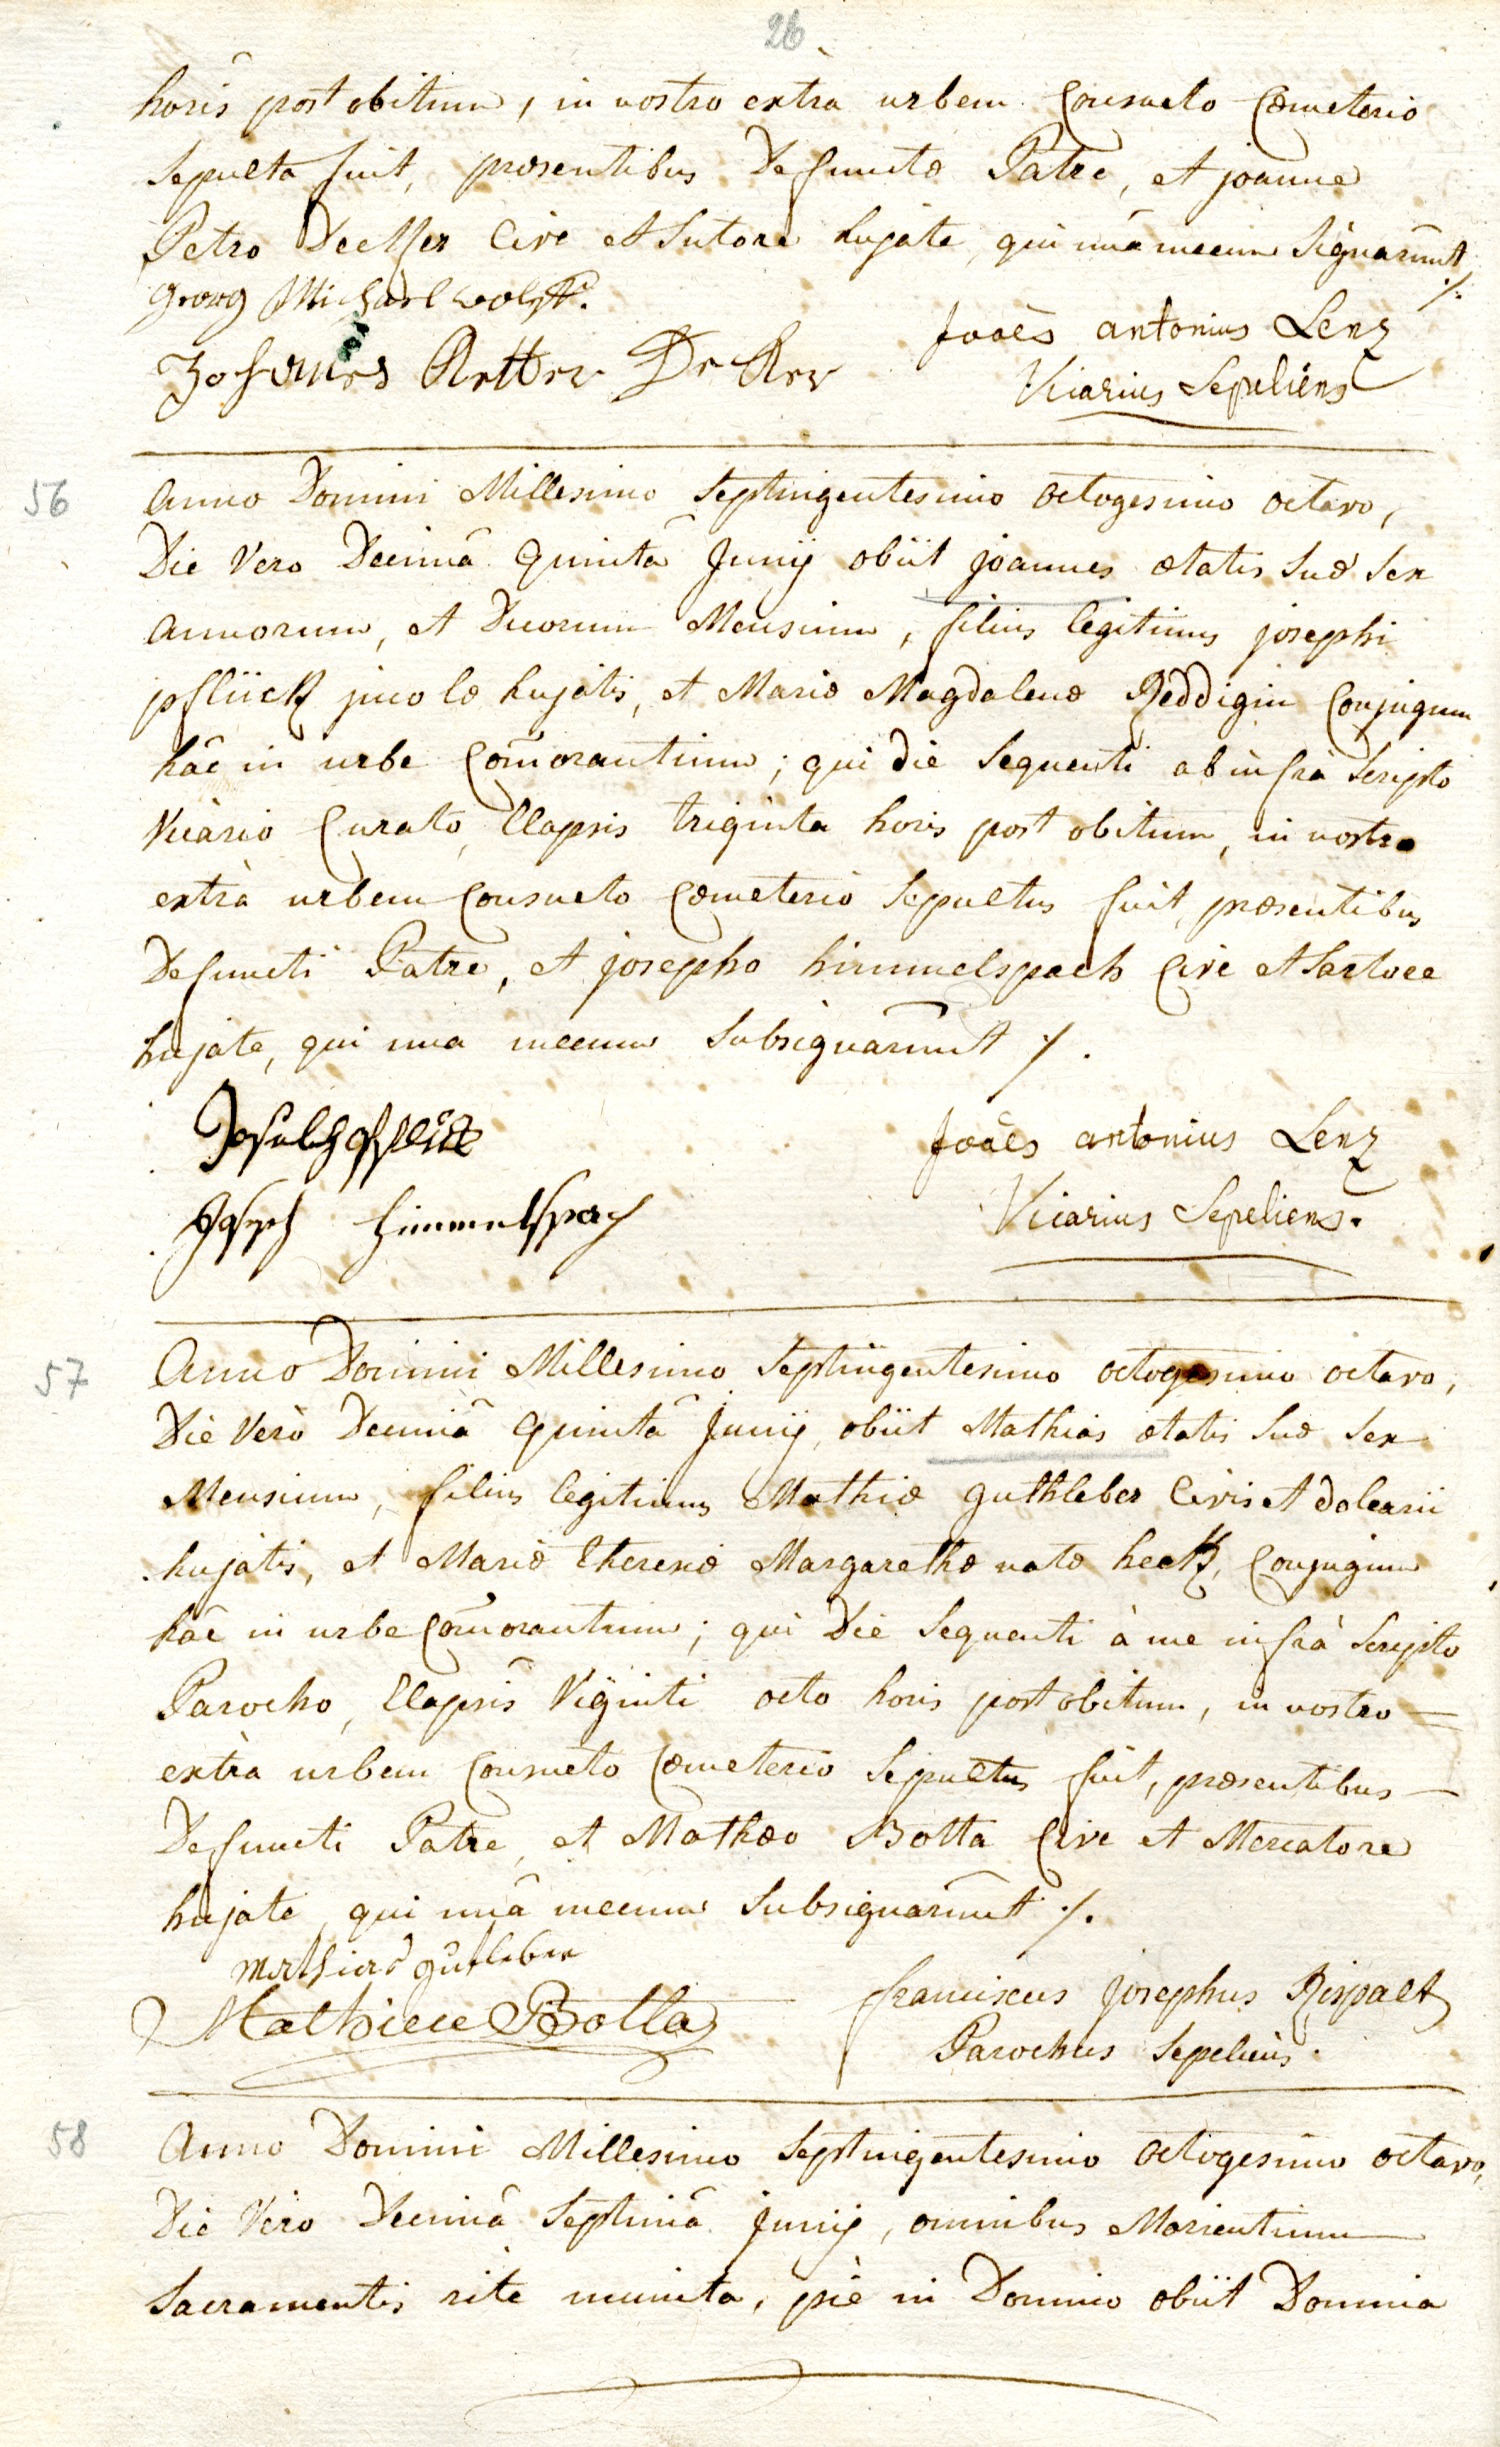 26
horis post obitum, in nostro extra urbem Consueto Cœmeterio
sepulta fuit, præsentibus Defunctæ Patre, et joanne
Petro Decker Cive et Sutore hujate, qui unâ mecum Signarunt ./.
georg Michael wolff.
Johannes Petter Decker
Joaēs antonius Lenz
Vicarius Sepeliens
56
Anno Domini Millesimo Septingentesimo octogesimo octavo,
Die Vero Decimâ Quintâ Junij obiit joannes ætatis suæ sex
annorum, et Duorum Mensium, filius legitimus josephi
pflück jncolæ hujatis, et Mariæ Magdalenæ Reddigin Conjugum
hâc in urbe Com̄orantium; qui die sequenti ab infrà Scripto
Vicàrio Curato, Elapsis triginta horis post obitum, in nostro
extrà urbem Consueto Cœmeterio sepultus fuit, præsentibus
Defuncti Patre, et josepho himmelspach Cive et Sartore
hujate, qui una mecum Subsignarunt ./.
Joseph pflück
Joseph Himmelspach
Joaēs antonius Lenz
Vicarius Sepeliens.
57
Anno Domini Millesimo Septingentesimo octogesimo octavo,
Die Verò Decimâ Quintâ Junij, obiit Mathias ætatis suæ sex
Mensium, filius legitimus Mathiæ guthleber Civis et dolearii
hujatis, et Mariæ Theresiæ Margarethæ natæ heck, Conjugum
hâc in urbe Com̄orantium; qui Die sequenti à me infrà Scripto
Parocho, Elapsis Viginti octo horis post obitum, in nostro
extra urbem Consueto Cœmeterio Sepultus fuit, præsentibus
Defuncti Patre, et Mathæo Botta Cive et Mercatore
hujate, qui unâ mecum Subsignarunt ./.
Mathias gutleben
Mathieu Botta
franciscus josephus Rispalt
Parochus Sepeliens.
58
Anno Domini Millesimo Septingentesimo octogesimo octavo,
Die Vero Decimâ Septimâ Junij, omnibus Morientium
Sacramentis rite munita, piè in Domino obiit Domina